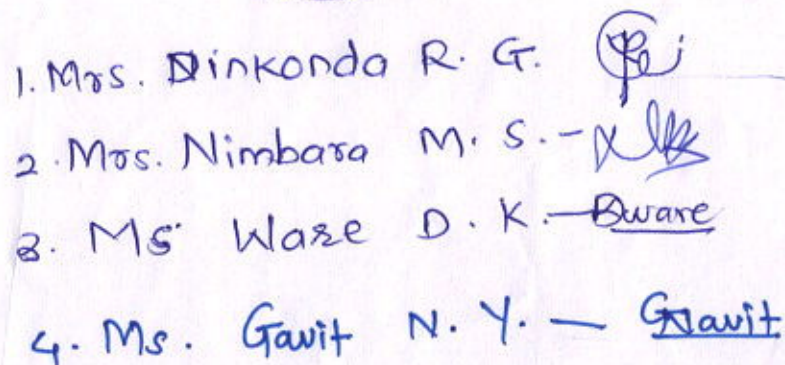 1. Mrs. Dinkonda R. G.
2. Mrs. Nimbara M. S. -
3. Ms Ware D. K. - Dware
4. Ms. Gavit N. Y. - GNavit